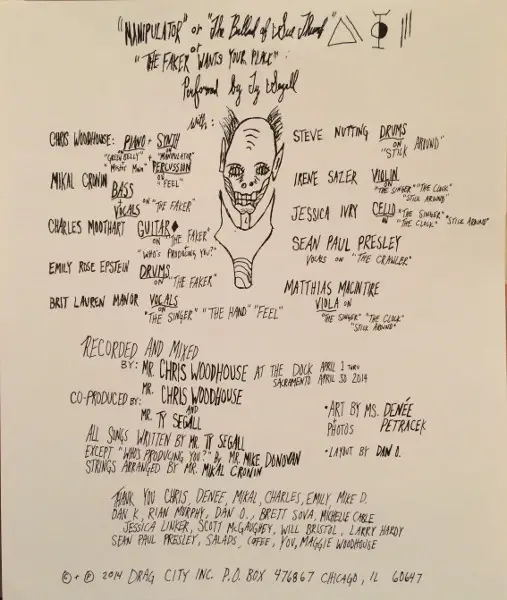 "MANIPULATOR" or "The Ballad of
or
"THE FAKER WANTS YOUR PLACE":
Performed by Ty Segall
with:
CHRIS WOODHOUSE: PIANO + SYNTH
on on
"GREEN BELLY" + "MANIPULATOR"
"MISTER MAIN" PERCUSSION
on "FEEL"
MIKAL CRONIN BASS
+
VOCALS on "THE FAKER"
CHARLES MOOTHART GUITAR
on "THE FAKER"
+
"WHO'S PRODUCING YOU?"
EMILY ROSE EPSTEIN DRUMS
on "THE FAKER"
BRIT LAUREN MANOR VOCALS
on
"THE SINGER" "THE HAND" "FEEL"
STEVE NUTTING DRUMS
ON
"STICK AROUND"
IRENE SAZER VIOLIN
on
"THE SINGER" "THE CLOCK"
"STICK AROUND"
JESSICA IVRY CELLO "THE SINGER"
on "THE CLOCK" "STICK AROUND"
SEAN PAUL PRESLEY
VOCALS on "THE CRAWLER"
MATTHIAS MCINTIRE
VIOLA on
"THE SINGER" "THE CLOCK"
"STICK AROUND"
RECORDED AND MIXED
BY: MR. CHRIS WOODHOUSE AT THE DOCK APRIL 1 THRU
SACRAMENTO APRIL 30 2014
CO-PRODUCED BY: MR. CHRIS WOODHOUSE
AND
MR. TY SEGALL
ALL SONGS WRITTEN BY MR TY SEGALL
EXCEPT "WHO'S PRODUCING YOU?" By MR. MIKE DONOVAN
STRINGS ARRANGED BY MR. MIKAL CRONIN
• ART BY MS. DENÉE
+
PHOTOS PETRACEK
• LAYOUT BY DAN O.
THANK YOU CHRIS, DENEE, MIKAL, CHARLES, EMILY, MIKE D.
DAN K, RIAN MURPHY, DAN O., BRETT SOVA, MICHELLE CABLE
JESSICA LINKER, SCOTT MCGAUGHEY, WILL BRISTOL, LARRY HARDY
SEAN PAUL PRESLEY, SALADS, COFFEE, YOU, MAGGIE WOODHOUSE
© + ℗ 2014 DRAG CITY INC. P.O. BOX 476867 CHICAGO, IL 60647